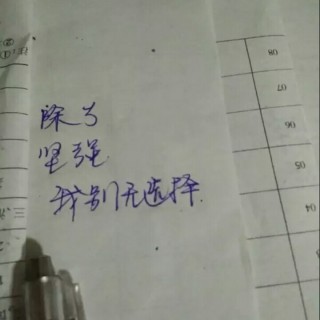 除了
坚强
我别无选择
08
07
06
05
04